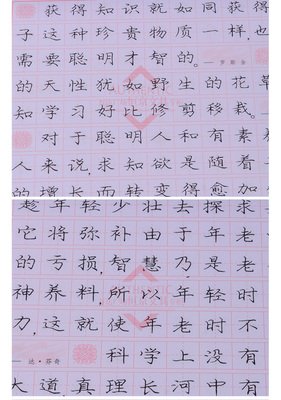 获得知识就如同获得
子这种珍贵物质一样,也
需要聪明才智的。
— 罗斯金
的天性犹如野生的花草
知学习好比修剪移栽。
对于聪明人和有素养
人来说,求知欲是随着
的增长而转变得愈加
趁年轻少壮去探求
它将弥补由于年老
的亏损,智慧乃是老
神养料,所以年轻时
力,这就使年老时不
— 达·芬奇
科学上没有
大道,真理长河中有